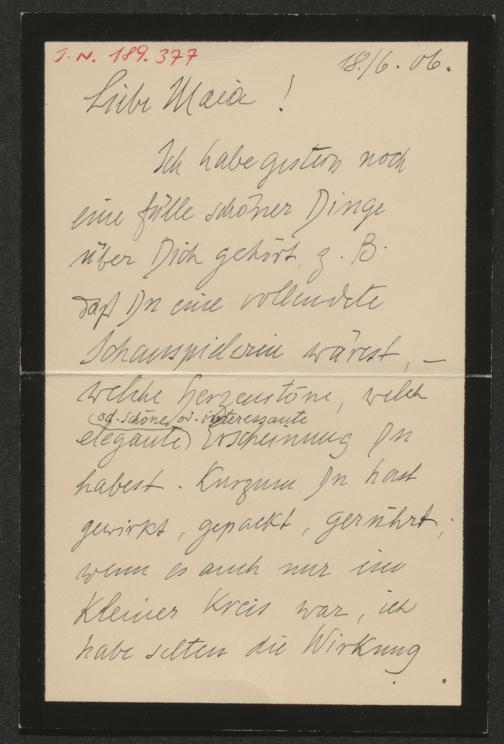 J.N. 189.377
18/6. 06.
Liebe Maia!
Ich habe gestern noch
eine fülle schöner Dinge
über Dich gehört, z. B.
daß Du eine vollendete
Schauspielerin wärest, –
welche Herzenstöne, welch
(od. schöne, od. interessante
elegante) Erscheinung Du
habest. Kurzum Du hast
gewirkt, gepackt, gerührt,
wenn es auch nur im
Kleiner Kreis war, ich
habe selten die Wirkung